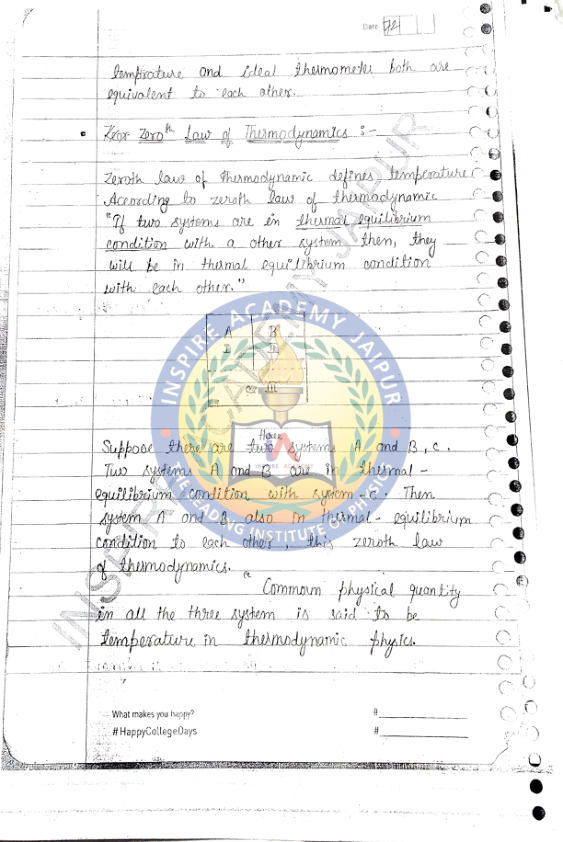 Date
temprature and ideal thermometer both are
equivalent to each other.
Zeroth Law of Thermodynamics :-
Zeroth law of thermodynamic defines temperature
According to zeroth law of thermodynamic
"If two systems are in thermal equilibrium
condition with a other system then, they
will be in thermal equilibrium condition
with each other."
A B
I II
C III
INSPIRE ACADEMY JAIPUR
THE LEADING INSTITUTE OF PHYSICS
INSPIRE ACADEMY JAIPUR
three
Suppose there are two systems A and B, c.
Two systems A and B are in thermal-
equilibrium condition with system-c. Then
system A and B also in thermal-equilibrium
condition to each other, this zeroth law
of thermodynamics.
"Commoun physical quantity
in all the three system is said to be
temperature in thermodynamic physics.
What makes you happy?
#HappyCollegeDays
#
#